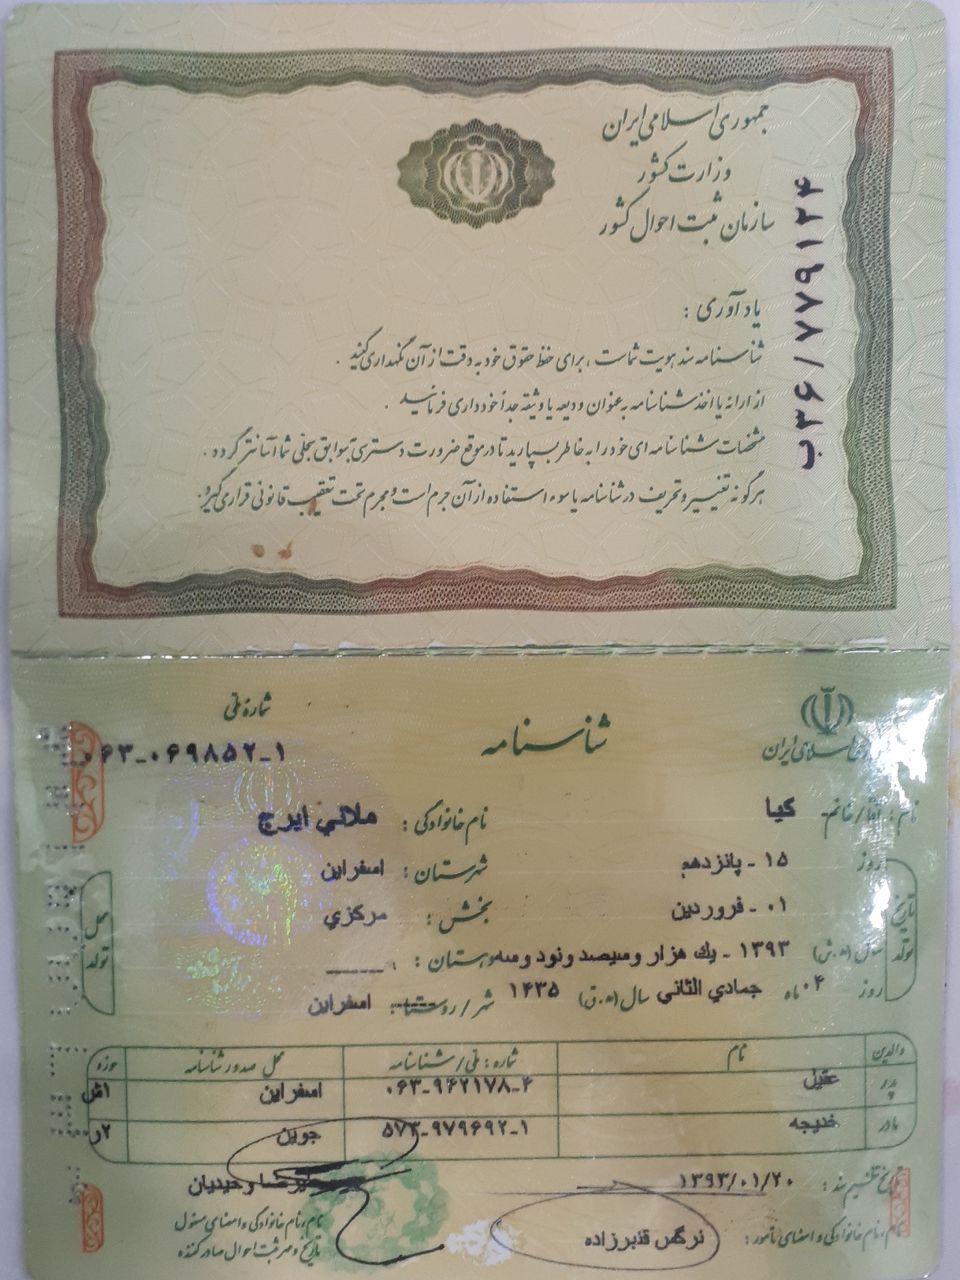 جمهوری اسلامی ایران
وزارت کشور
سازمان ثبت احوال کشور
ب۳۶/۷۷۹۱۲۴
یادآوری :
شناسنامه سند هویت شماست ، برای حفظ حقوق خود به دقت از آن نگهداری کنید .
از ارائه یا اخذ شناسنامه به عنوان ودیعه یا وثیقه جداً خودداری فرمائید .
مشخصات شناسنامه ای خود را به خاطر بسپارید تا در موقع ضرورت دسترسی به سوابق سجلی شما آسانتر گردد .
هرگونه تغییر و تحریف در شناسنامه یا سوء استفاده از آن جرم است و مجرم تحت تعقیب قانونی قرار می گیرد.
اسلامی ایران
شناسنامه
شماره ملی
۰۶۳-۰۶۹۸۵۲-۱
نام : آقا/خانم- کیا
نام خانوادگی : ملائي ايرج
تاریخ تولد
روز ۱۵ - پانزدهم
۰۱ - فروردين
سال(ه.ش) ۱۳۹۳ - يك هزار وسيصد ونود وسه
روز ۰۴ ماه جمادي الثاني سال(ه.ق) ۱۴۳۵
محل تولد
شهرستان : اسفراين
بخش : مركزي
دهستان :
شهر/روستا : اسفراين
والدین نام شماره : ملی/شناسنامه محل صدور شناسنامه حوزه
پدر عقيل ۰۶۳-۹۶۲۱۷۸-۴ اسفراين ۱ش
مادر خديجه ۵۷۳-۹۷۹۶۹۲-۱ جوين ۲ر
تاریخ تنظیم سند : ۱۳۹۳/۰۱/۲۰
نام،نام خانوادگی و امضای مأمور : نرگس قنبرزاده
وحيديان
نام،نام خانوادگی و امضای مسئول
تاریخ و مهر ثبت احوال صادرکننده